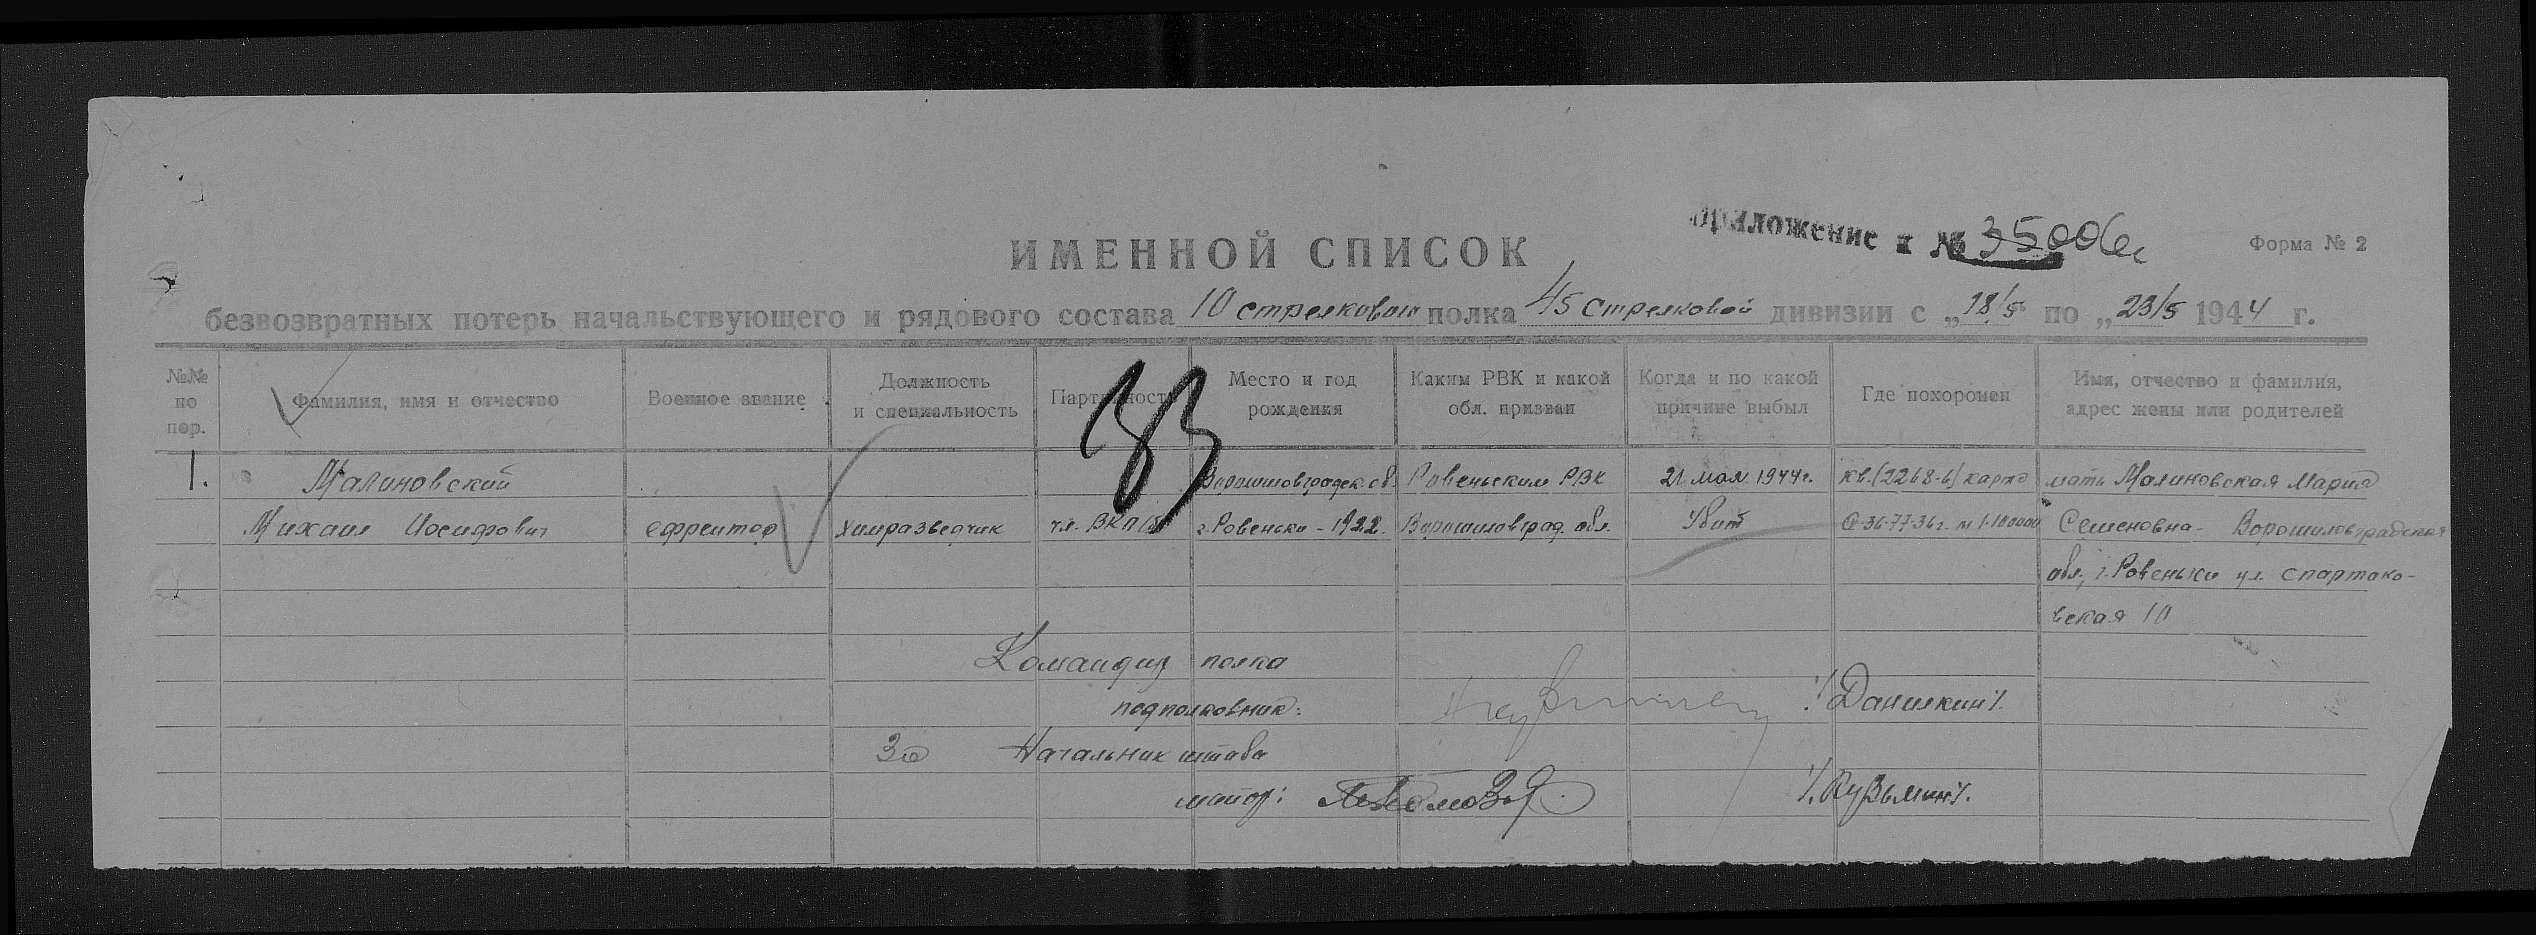 Приложение к № 35006с
ИМЕННОЙ СПИСОК
Форма № 2
безвозвратных потерь начальствующего и рядового состава 10 стрелкового полка 45 стрелковой дивизии с „18/5 по „23/5 1944 г.
№№ по пор.
Фамилия, имя и отчество
Военное звание
Должность и специальность
Партийность
Место и год рождения
Каким РВК и какой обл. призван
Когда и по какой причине выбыл
Где похоронен
Имя, отчество и фамилия, адрес жены или родителей
83
1. Малиновский Ворошиловградск. об. Ровеньским РВК 21 мая 1944 г. кв. (2268-б) карта мать Малиновская Мария
Михаил Иосифович ефрейтор химразведчик чл. ВКП(б) г. Ровеньки - 1922. Ворошиловград. обл. Убит 36-77-36 г. м 1-100000 Семеновна - Ворошиловградская
обл., г. Ровеньки ул. Спартако-
вская 10
Командир полка
подполковник: /Данилкин/.
За Начальник штаба
майор: /Кузьмин/.